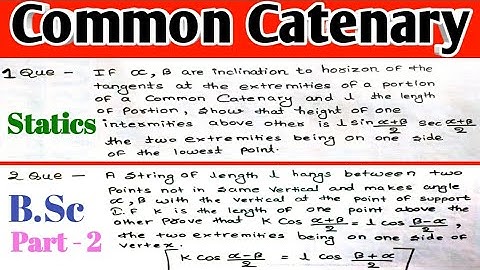 Common Catenary
1 Que - If α, β are inclination to horizon of the
tangents at the extremities of a portion
of a Common Catenary and l the length
of portion, show that height of one
intermities above other is l sin α+β/2 sec α+β/2
the two extremities being on one side
of the lowest point.
Statics
2 Que - A string of length l hangs between two
points not in same vertical and makes angle
α, β with the vertical at the point of support
I.F K is the length of one point above the
other prove that K cos α+β/2 = l cos β-α/2,
the two extremities being on one side of
vertex.
K cos α-β/2 = l cos β+α/2
B.Sc
Part - 2